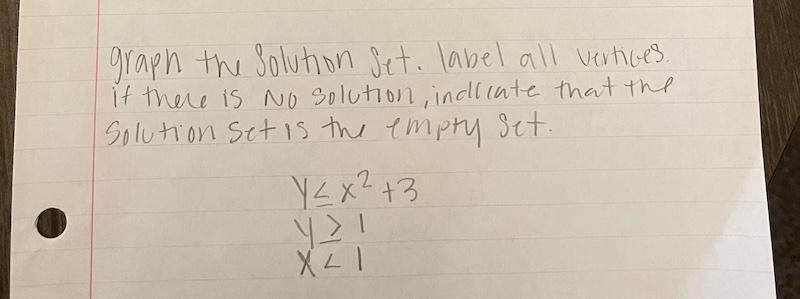 graph the solution set. label all vertices.
if there is no solution, indicate that the
solution set is the empty set.
y ≤ x² + 3
y ≥ 1
x < 1